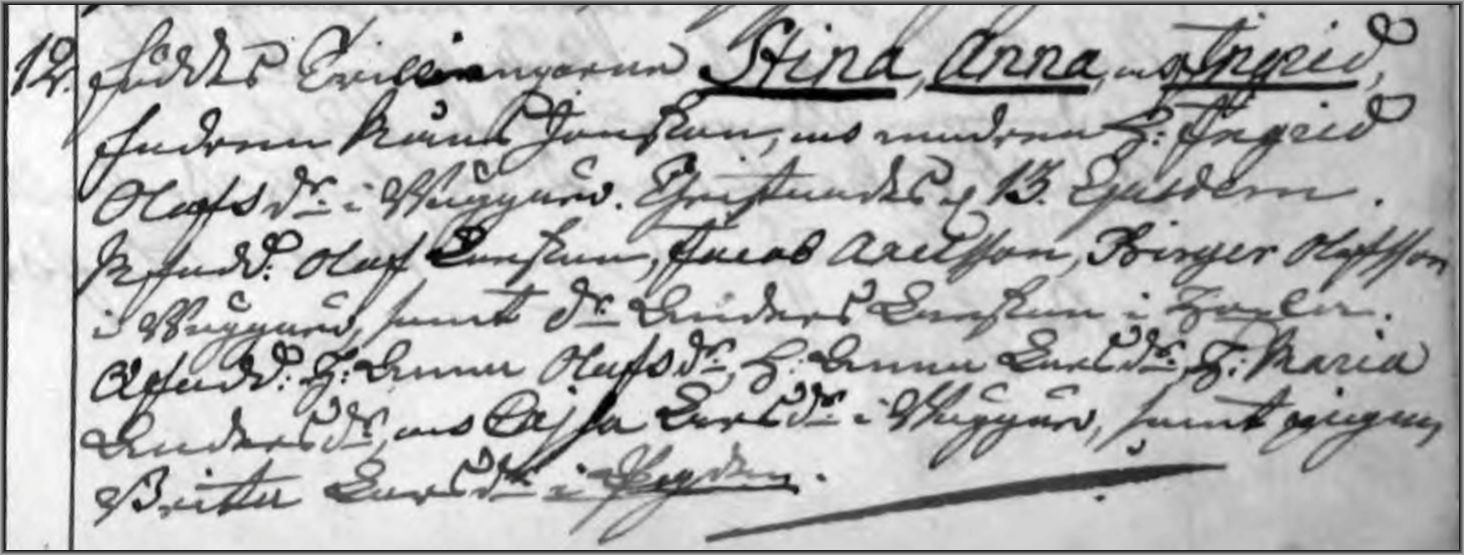 12. föddes Trillingarne Stina, Anna, och Ingrid,
fadren Måns Jonsson, och modren H: Ingrid
Olofs dr i Wäggård. Christnades d 13. Ejusdem.
M fadd: Olof Larsson, Jacob Axelsson, Birger Olofsson
i Wäggård, samt dr Anders Larsson i
Q fadd: H: Anna Olofs dr, H: Anna Lars dr, H: Maria
Anders dr, och Cajsa Lars dr i Wäggård, samt pigan
Britta Lars dr i